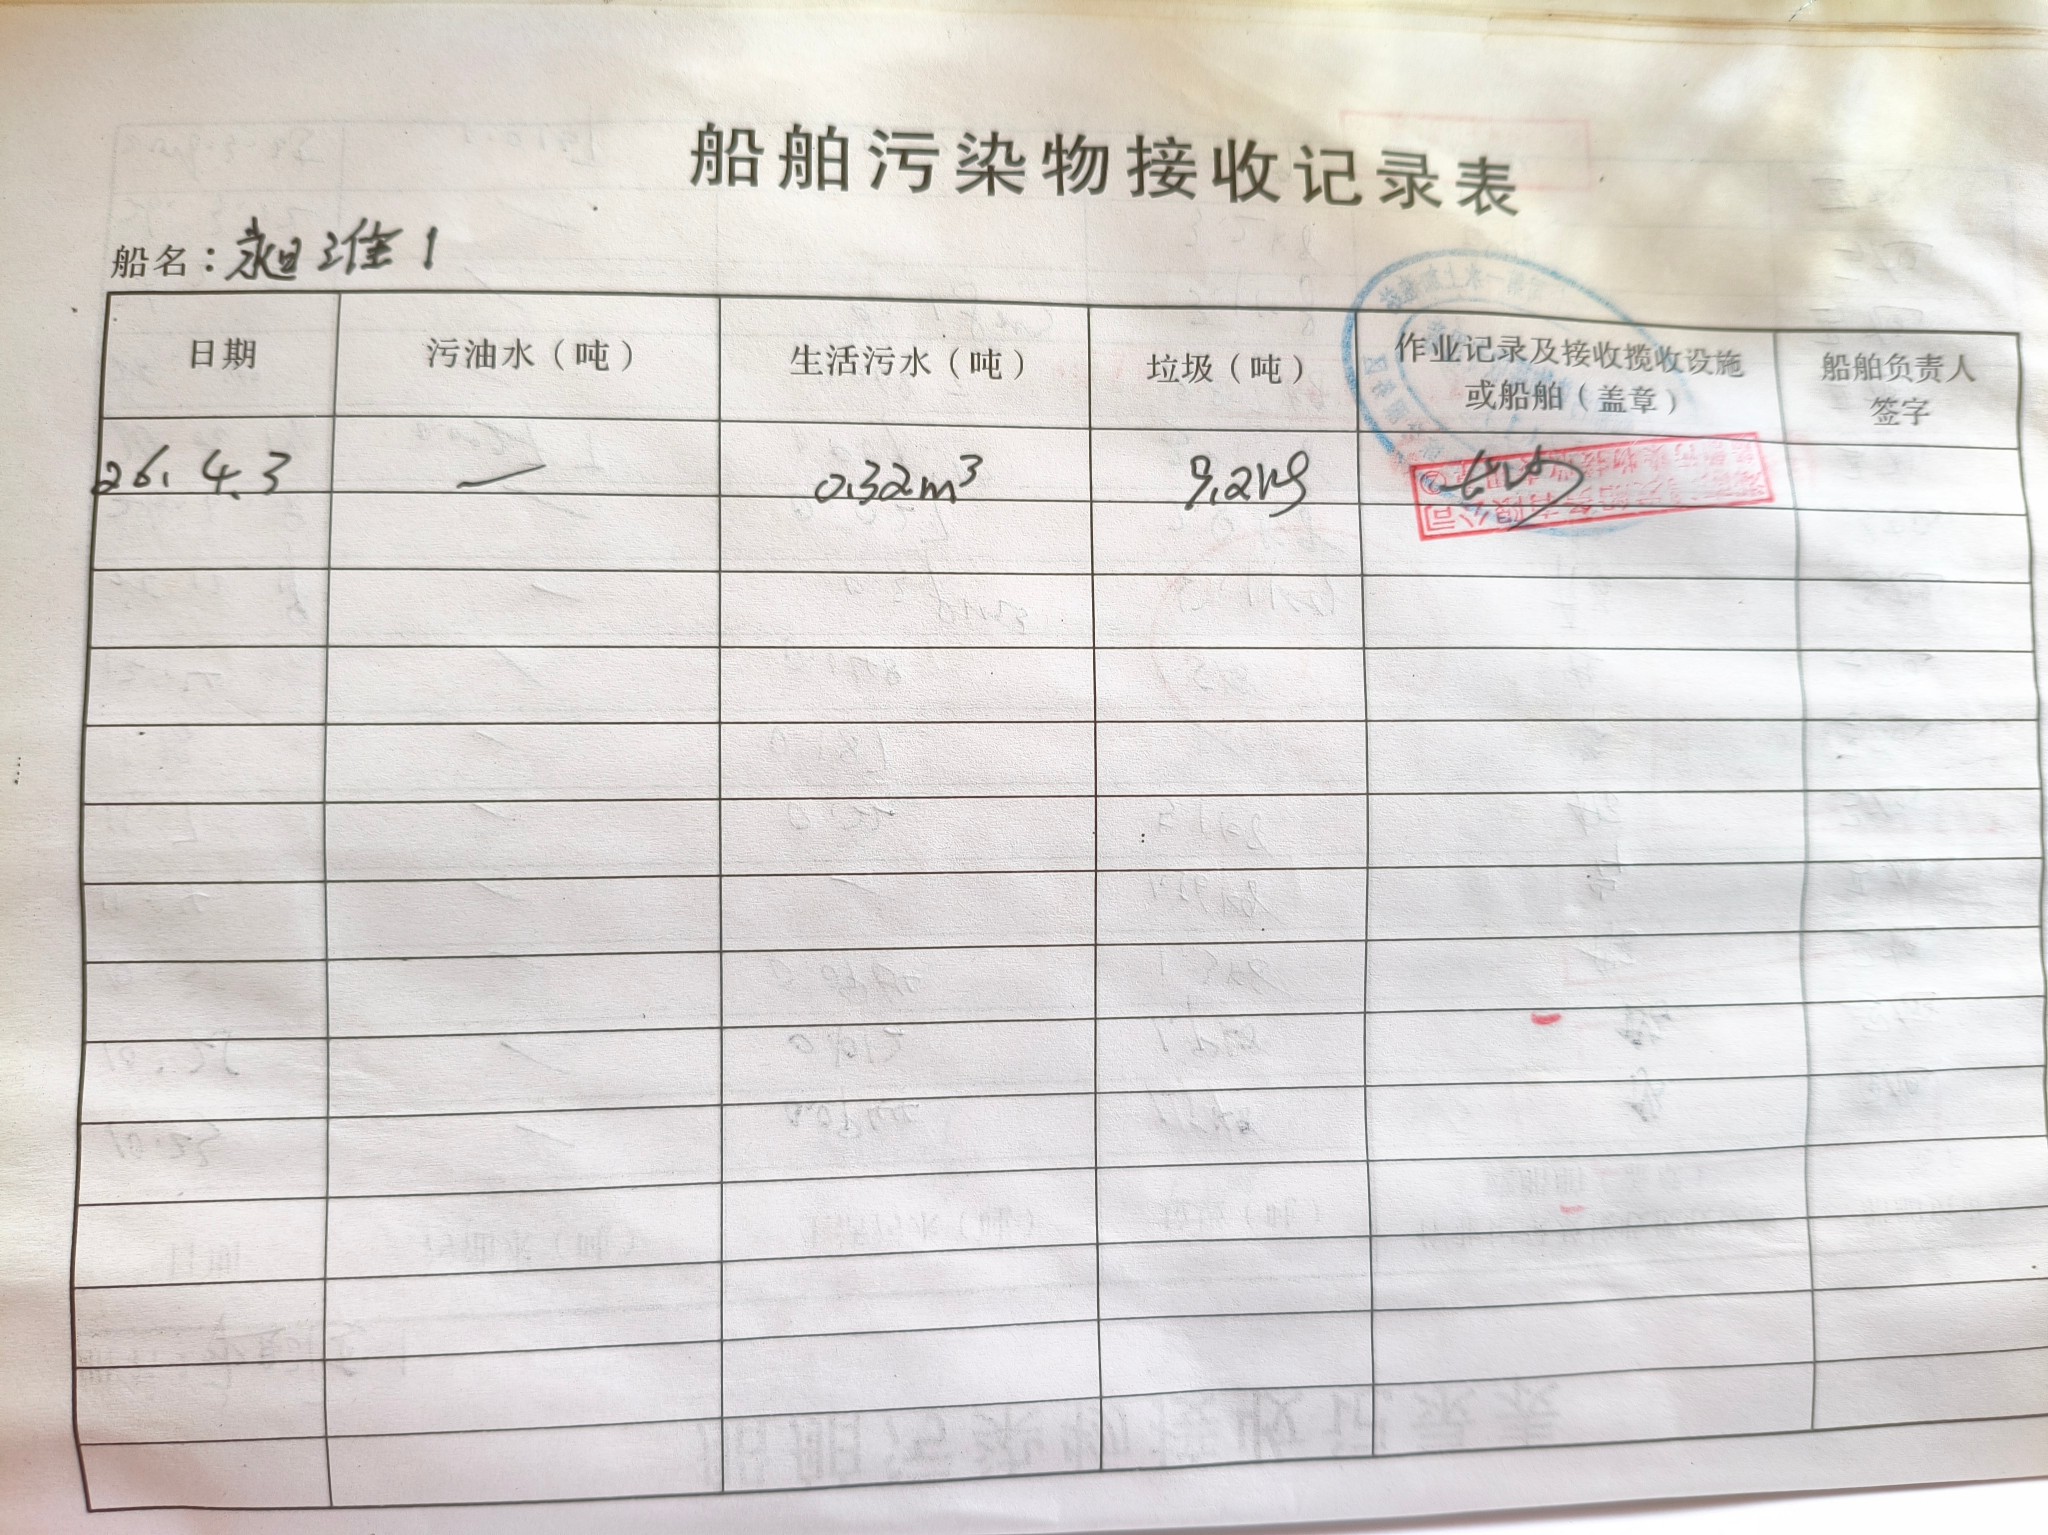 船舶污染物接收记录表
船名：永日淮1
日期 污油水（吨） 生活污水（吨） 垃圾（吨） 作业记录及接收揽收设施或船舶（盖章） 船舶负责人签字
26.4.3 — 0.32m³ 9.2kg